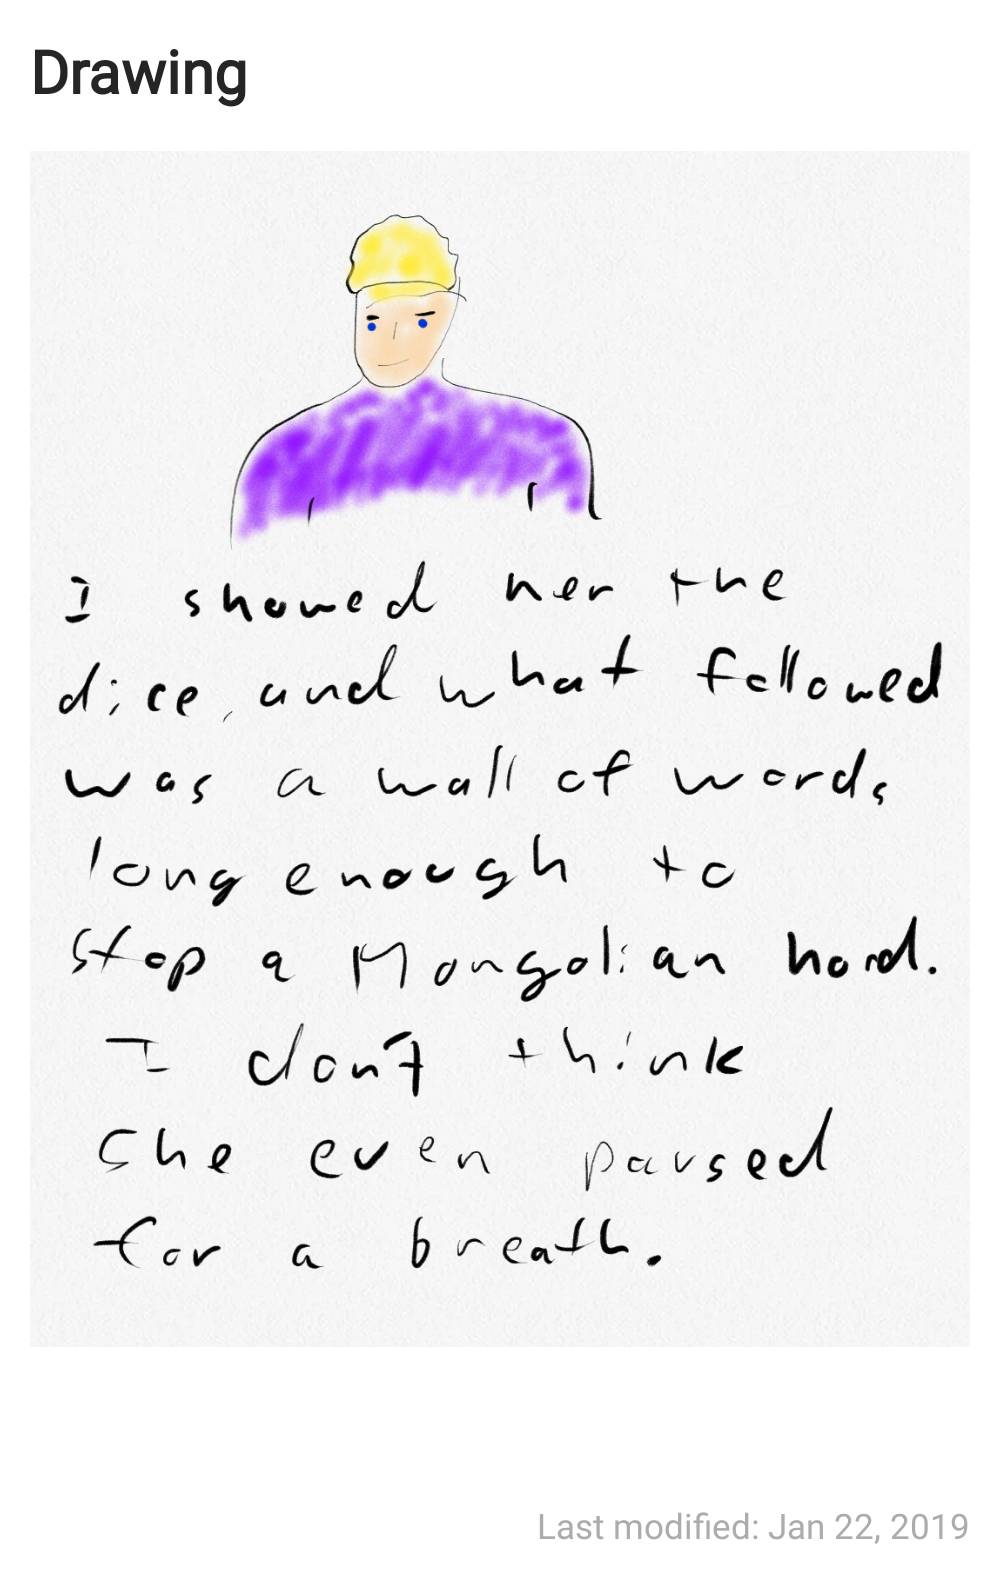 Drawing
I showed her the
dice, and what followed
was a wall of words
long enough to
stop a Mongolian hord.
I don't think
she even paused
for a breath.
Last modified: Jan 22, 2019